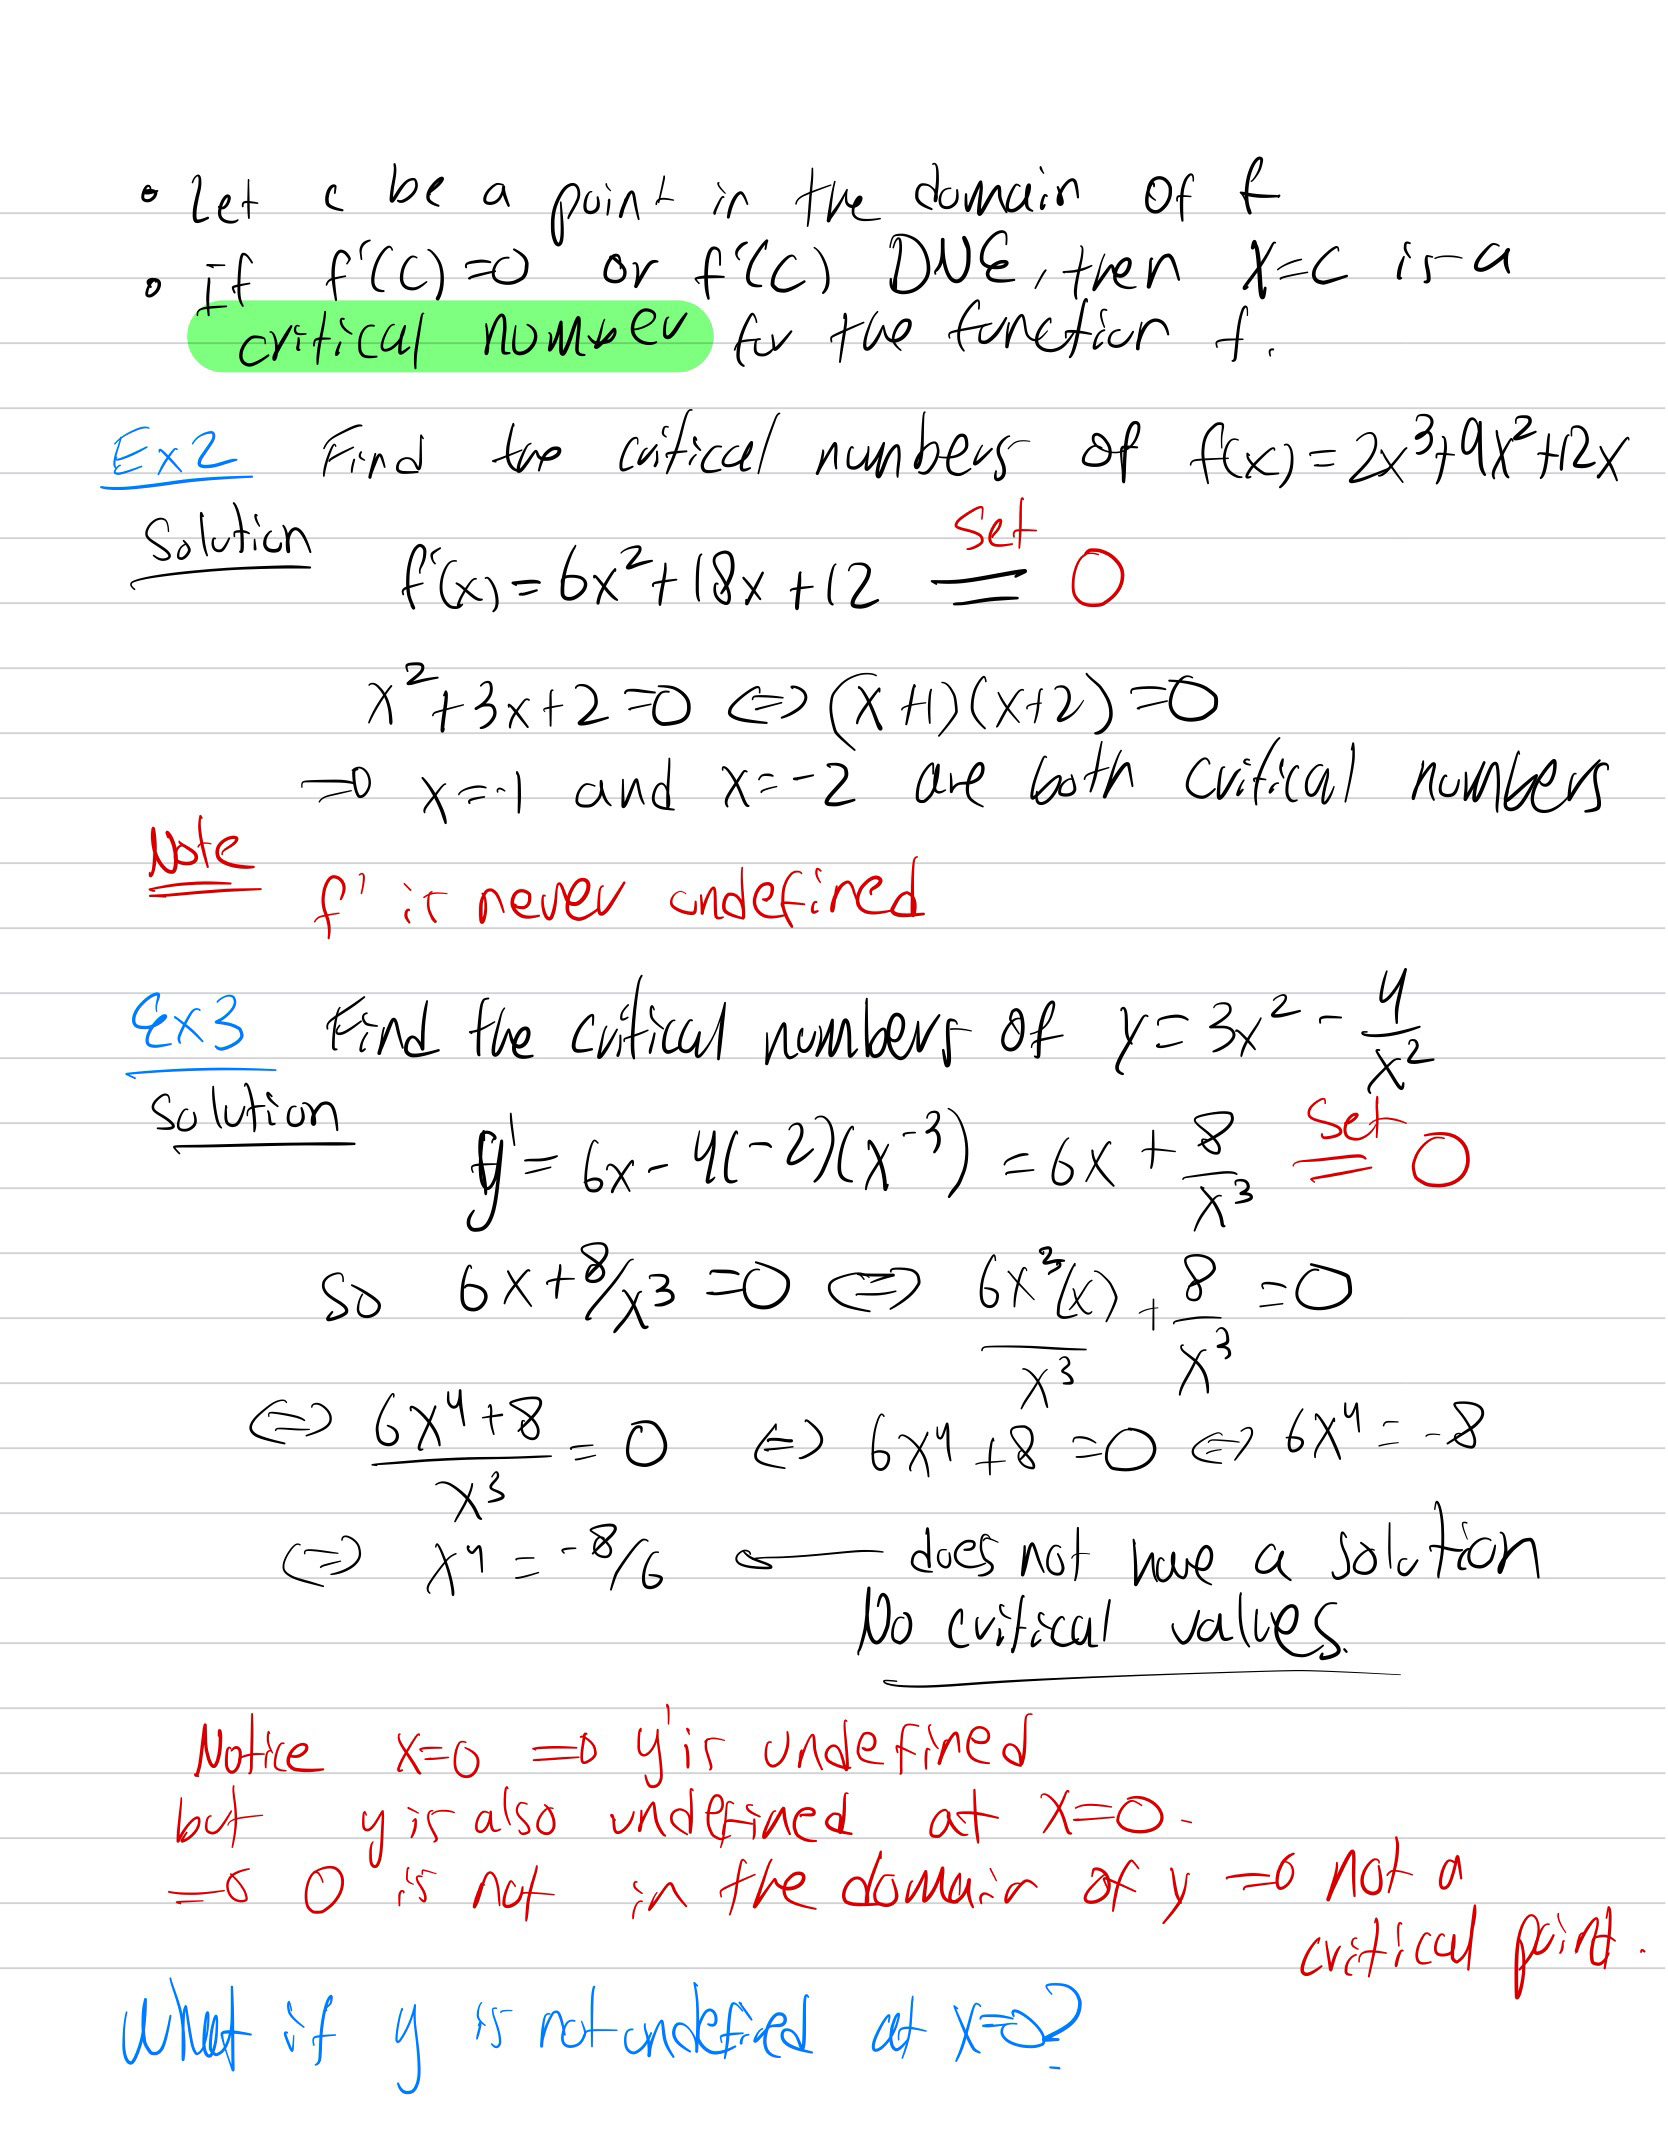 • Let c be a point in the domain of f
• If f'(c)=0 or f'(c) DNE, then x=c is a
critical number for the function f.
Ex2 Find the critical numbers of f(x)=2x³+9x²+12x
Solution
f'(x)=6x²+18x+12 set = 0
x²+3x+2=0 ⇔ (x+1)(x+2)=0
⇒ x=-1 and x=-2 are both critical numbers
Note
f' is never undefined
Ex3 Find the critical numbers of y=3x² - 4/x²
Solution
y' = 6x - 4(-2)(x⁻³) = 6x + 8/x³ set = 0
so 6x+8/x³ =0 ⇔ 6x³(x)/x³ + 8/x³ =0
⇔ (6x⁴+8)/x³ = 0 ⇔ 6x⁴+8=0 ⇔ 6x⁴ = -8
⇔ x⁴ = -8/6 ← does not have a solution
No critical values.
Notice x=0 ⇒ y' is undefined
but y is also undefined at x=0.
⇒ 0 is not in the domain of y ⇒ not a
critical point.
What if y is not undefined at x=0?